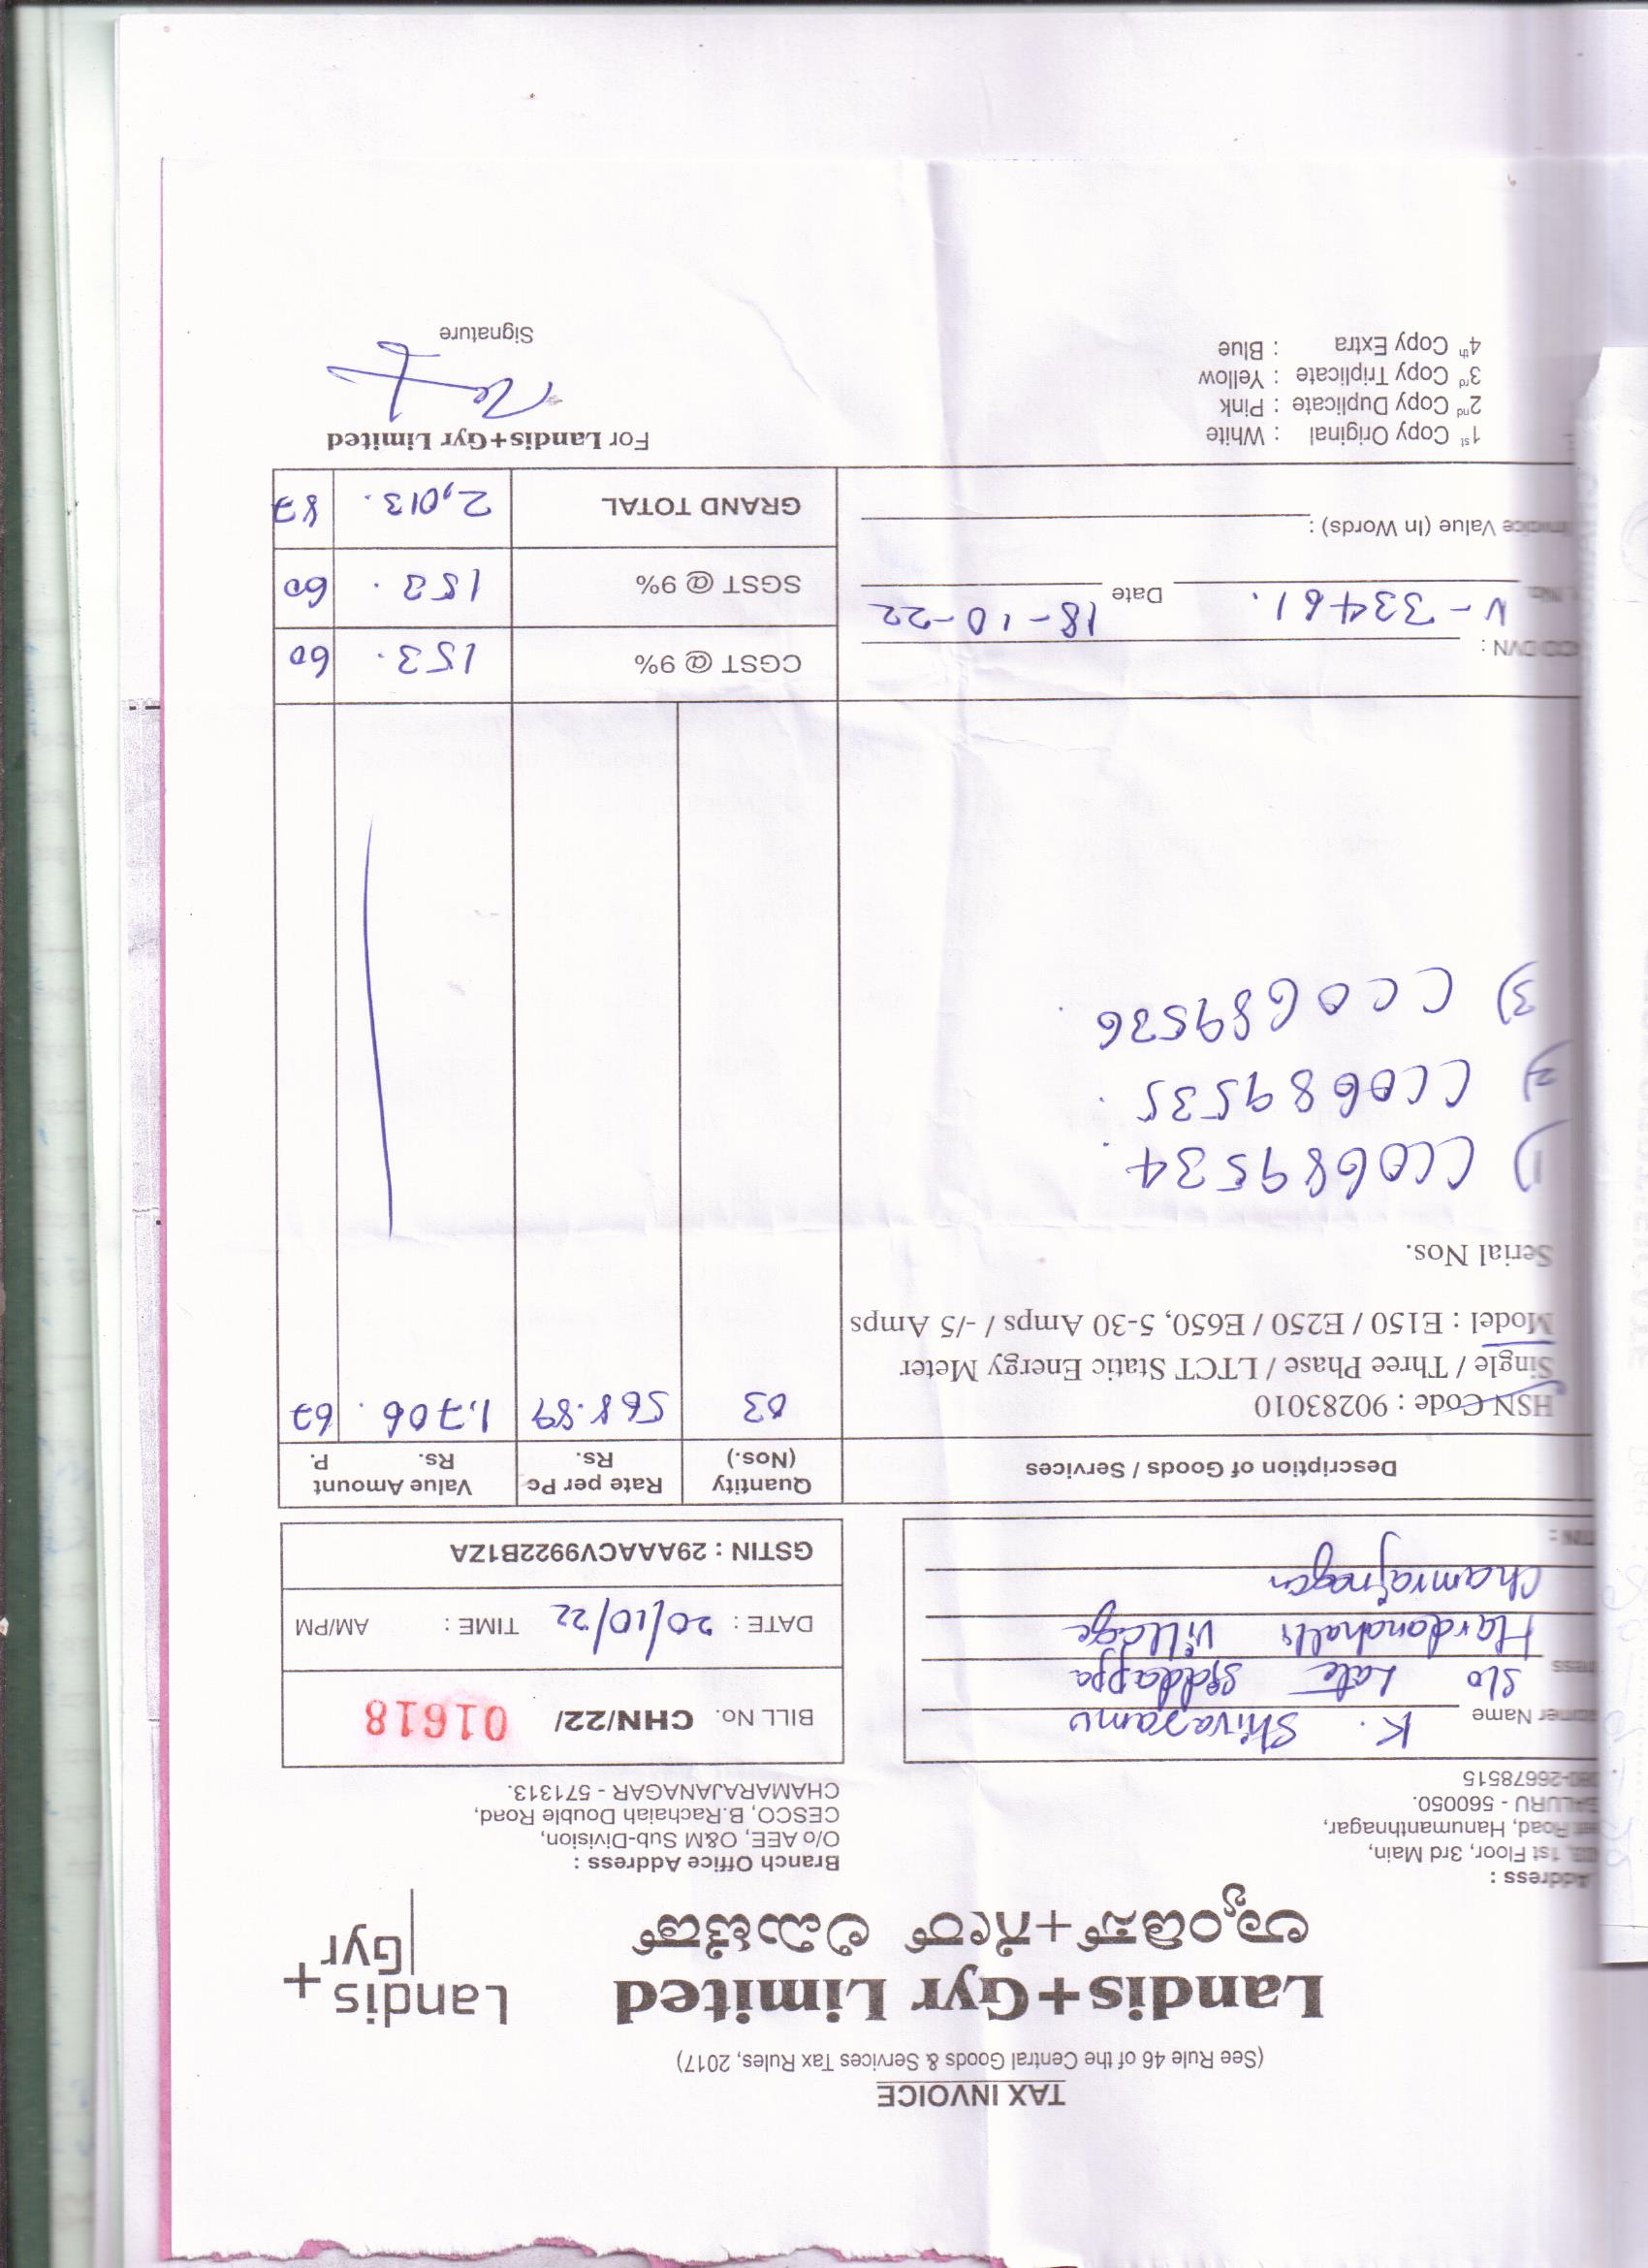 TAX INVOICE
(See Rule 46 of the Central Goods & Services Tax Rules, 2017)
Landis+Gyr Limited
ಲ್ಯಾಂಡಿಸ್+ಗೀರ್ ಲಿಮಿಟೆಡ್
Landis+
Gyr
Address :
1st Floor, 3rd Main,
Road, Hanumanthnagar,
- 560050.
080-26678515
Branch Office Address :
O/o AEE, O&M Sub-Division,
CESCO, B.Rachaiah Double Road,
CHAMARAJANAGAR - 571313.
Name K. Shivaramu
S/o Late Siddappa
Hardanahalli Village
Chamrajnagar
BILL No. CHN/22/ 01618
DATE : 20/10/22 TIME : AM/PM
GSTIN : 29AAACV9922B1ZA
Description of Goods / Services
Quantity (Nos.)
Rate per Pc Rs.
Value Amount Rs. P.
HSN Code : 90283010 03 568.89 1,706. 67
Single / Three Phase / LTCT Static Energy Meter
Model : E150 / E250 / E650, 5-30 Amps / -/5 Amps
Serial Nos.
1) CC0689534
2) CC0689535
3) CC0689536
DVN :
CGST @ 9% 153. 60
No. N-33461. Date 18-10-22
SGST @ 9% 153. 60
Invoice Value (In Words) :
GRAND TOTAL 2,013. 87
1st Copy Original : White
2nd Copy Duplicate : Pink
3rd Copy Triplicate : Yellow
4th Copy Extra : Blue
For Landis+Gyr Limited
Signature